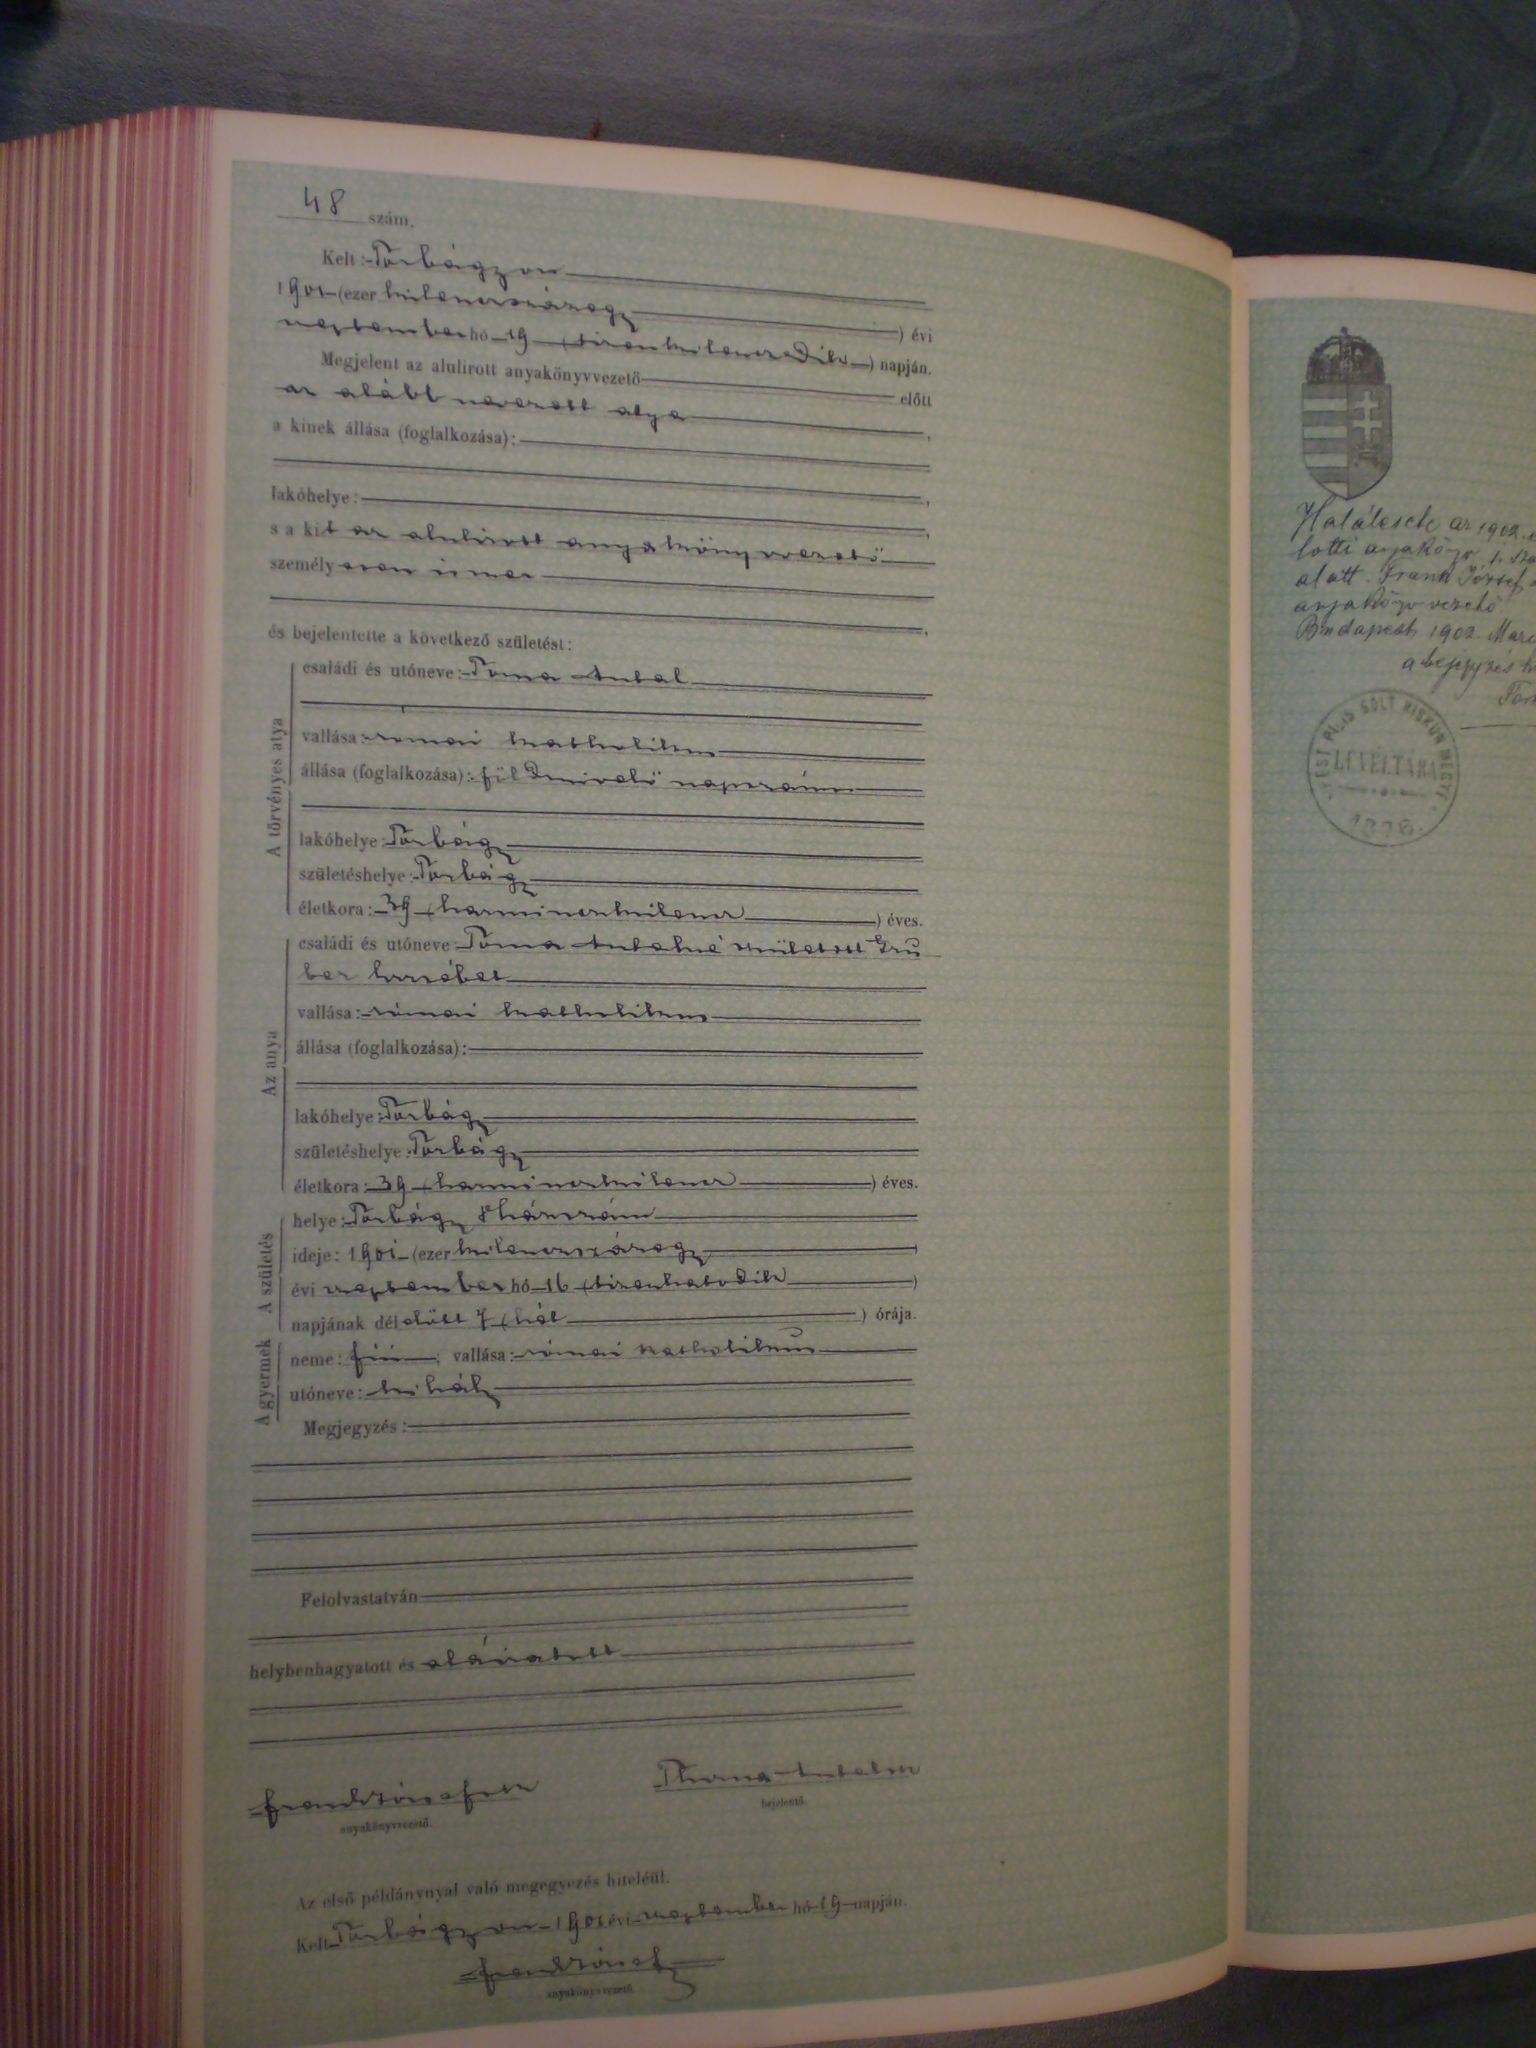 48 szám.
Kelt: Torbágyon
1901 (ezer kilencszázegy) évi
szeptember hó 19 (tizenkilencedik) napján.
Megjelent az alulirott anyakönyvvezető előtt
az alább nevezett atya,
a kinek állása (foglalkozása):
lakóhelye:
s a kit az alulirott anyakönyvvezető
személyesen ismer
és bejelentette a következő születést:
A törvényes atya
családi és utóneve: Toma Antal
vallása: római katholikus
állása (foglalkozása): földmivelő napszámos
lakóhelye: Torbágy
születéshelye: Torbágy
életkora: 39 (harminczkilencz) éves.
Az anya
családi és utóneve Toma Antalné született Gru
ber Erzsébet
vallása: római katholikus
állása (foglalkozása):
lakóhelye: Torbágy
születéshelye: Torbágy
életkora: 39 (harminczkilencz) éves.
A születés
helye: Torbágy házszám
ideje: 1901 (ezer kilenczszázegy)
évi szeptember hó 16 (tizenhatodik)
napjának délelőtt 7 (hét) órája.
A gyermek
neme: fiú; vallása: római katholikus
utóneve: Mihály
Megjegyzés:
Felolvastatván
helybenhagyatott és aláiratott
anyakönyvvezető.
Thoma Antal
bejelentő.
Az első példánynyal való megegyezés hiteléül.
Kelt Torbágyon 1901 évi szeptember hó 19 napján.
Frank József
anyakönyvvezető.
Halálesete az 1902.
lotti anyakönyv 1.
alatt. Frank József
anyakönyvvezető
Budapest 1902.
a bejegyzés
PEST PILIS SOLT KISKUN MEGYE
LEVÉLTÁRA